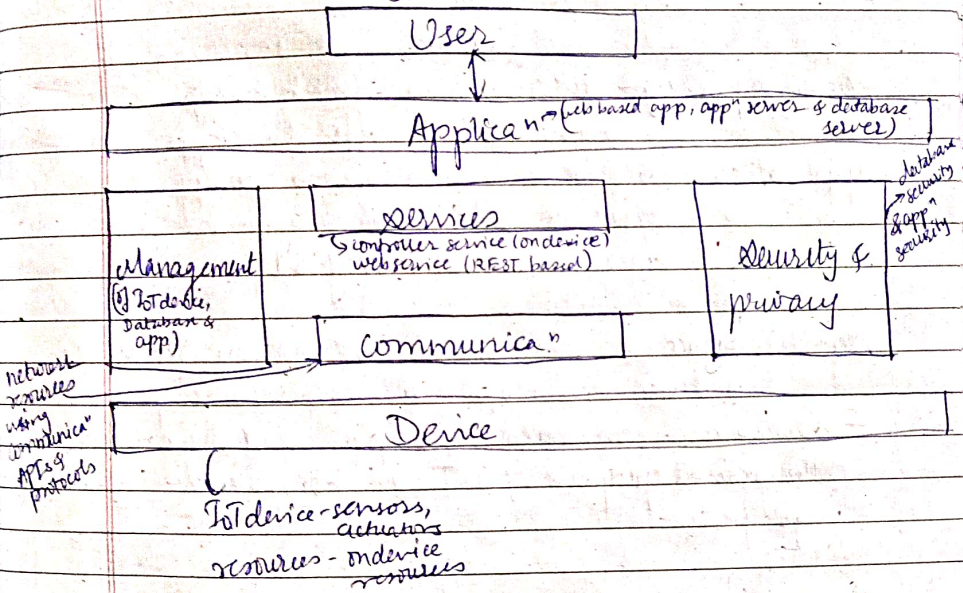 User
Applicaⁿ → (web based app, appⁿ server & database
server)
services
↳ controller service (ondevice)
webservice (REST based)
Management
(of IoT device,
Database &
app)
Security &
privacy
→ database
security
& appⁿ
security
communicaⁿ
network
resources
using
communicaⁿ
APIs &
protocols
Device
IoT device - sensors,
actuators
resources - ondevice
resources